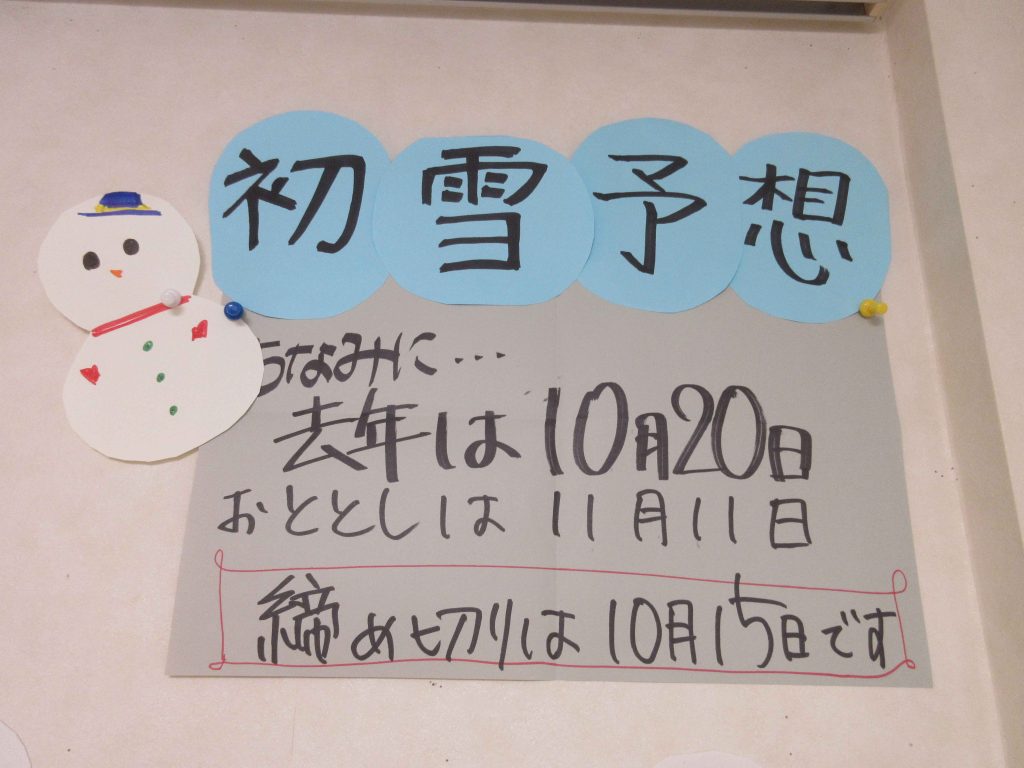 初雪予想
ちなみに・・・
去年は10月20日
おととしは 11月11日
締め切りは10月15日です